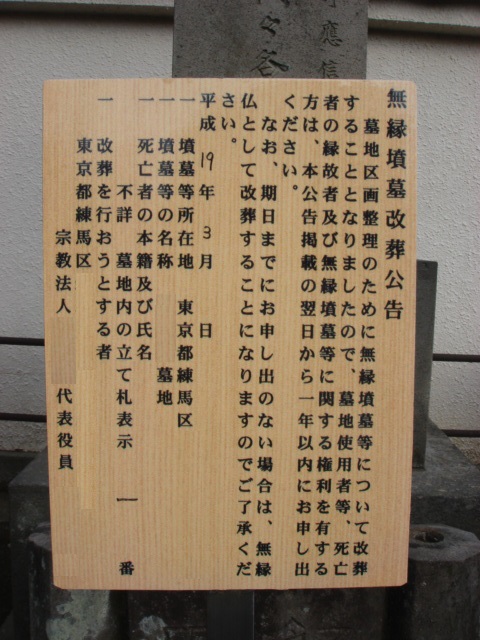 無縁墳墓改葬公告
墓地区画整理のために無縁墳墓等について改葬
することとなりましたので、墓地使用者等、死亡
者の縁故者及び無縁墳墓等に関する権利を有する
方は、本公告掲載の翌日から一年以内にお申し出
ください。
なお、期日までにお申し出のない場合は、無縁
仏として改葬することになりますのでご了承くだ
さい。
平成19年3月 日
一 墳墓等所在地 東京都練馬区
一 墳墓等の名称 墓地
一 死亡者の本籍及び氏名
不詳 墓地内の立て札表示 一 番
一 改葬を行おうとする者
東京都練馬区
宗教法人 代表役員
應信